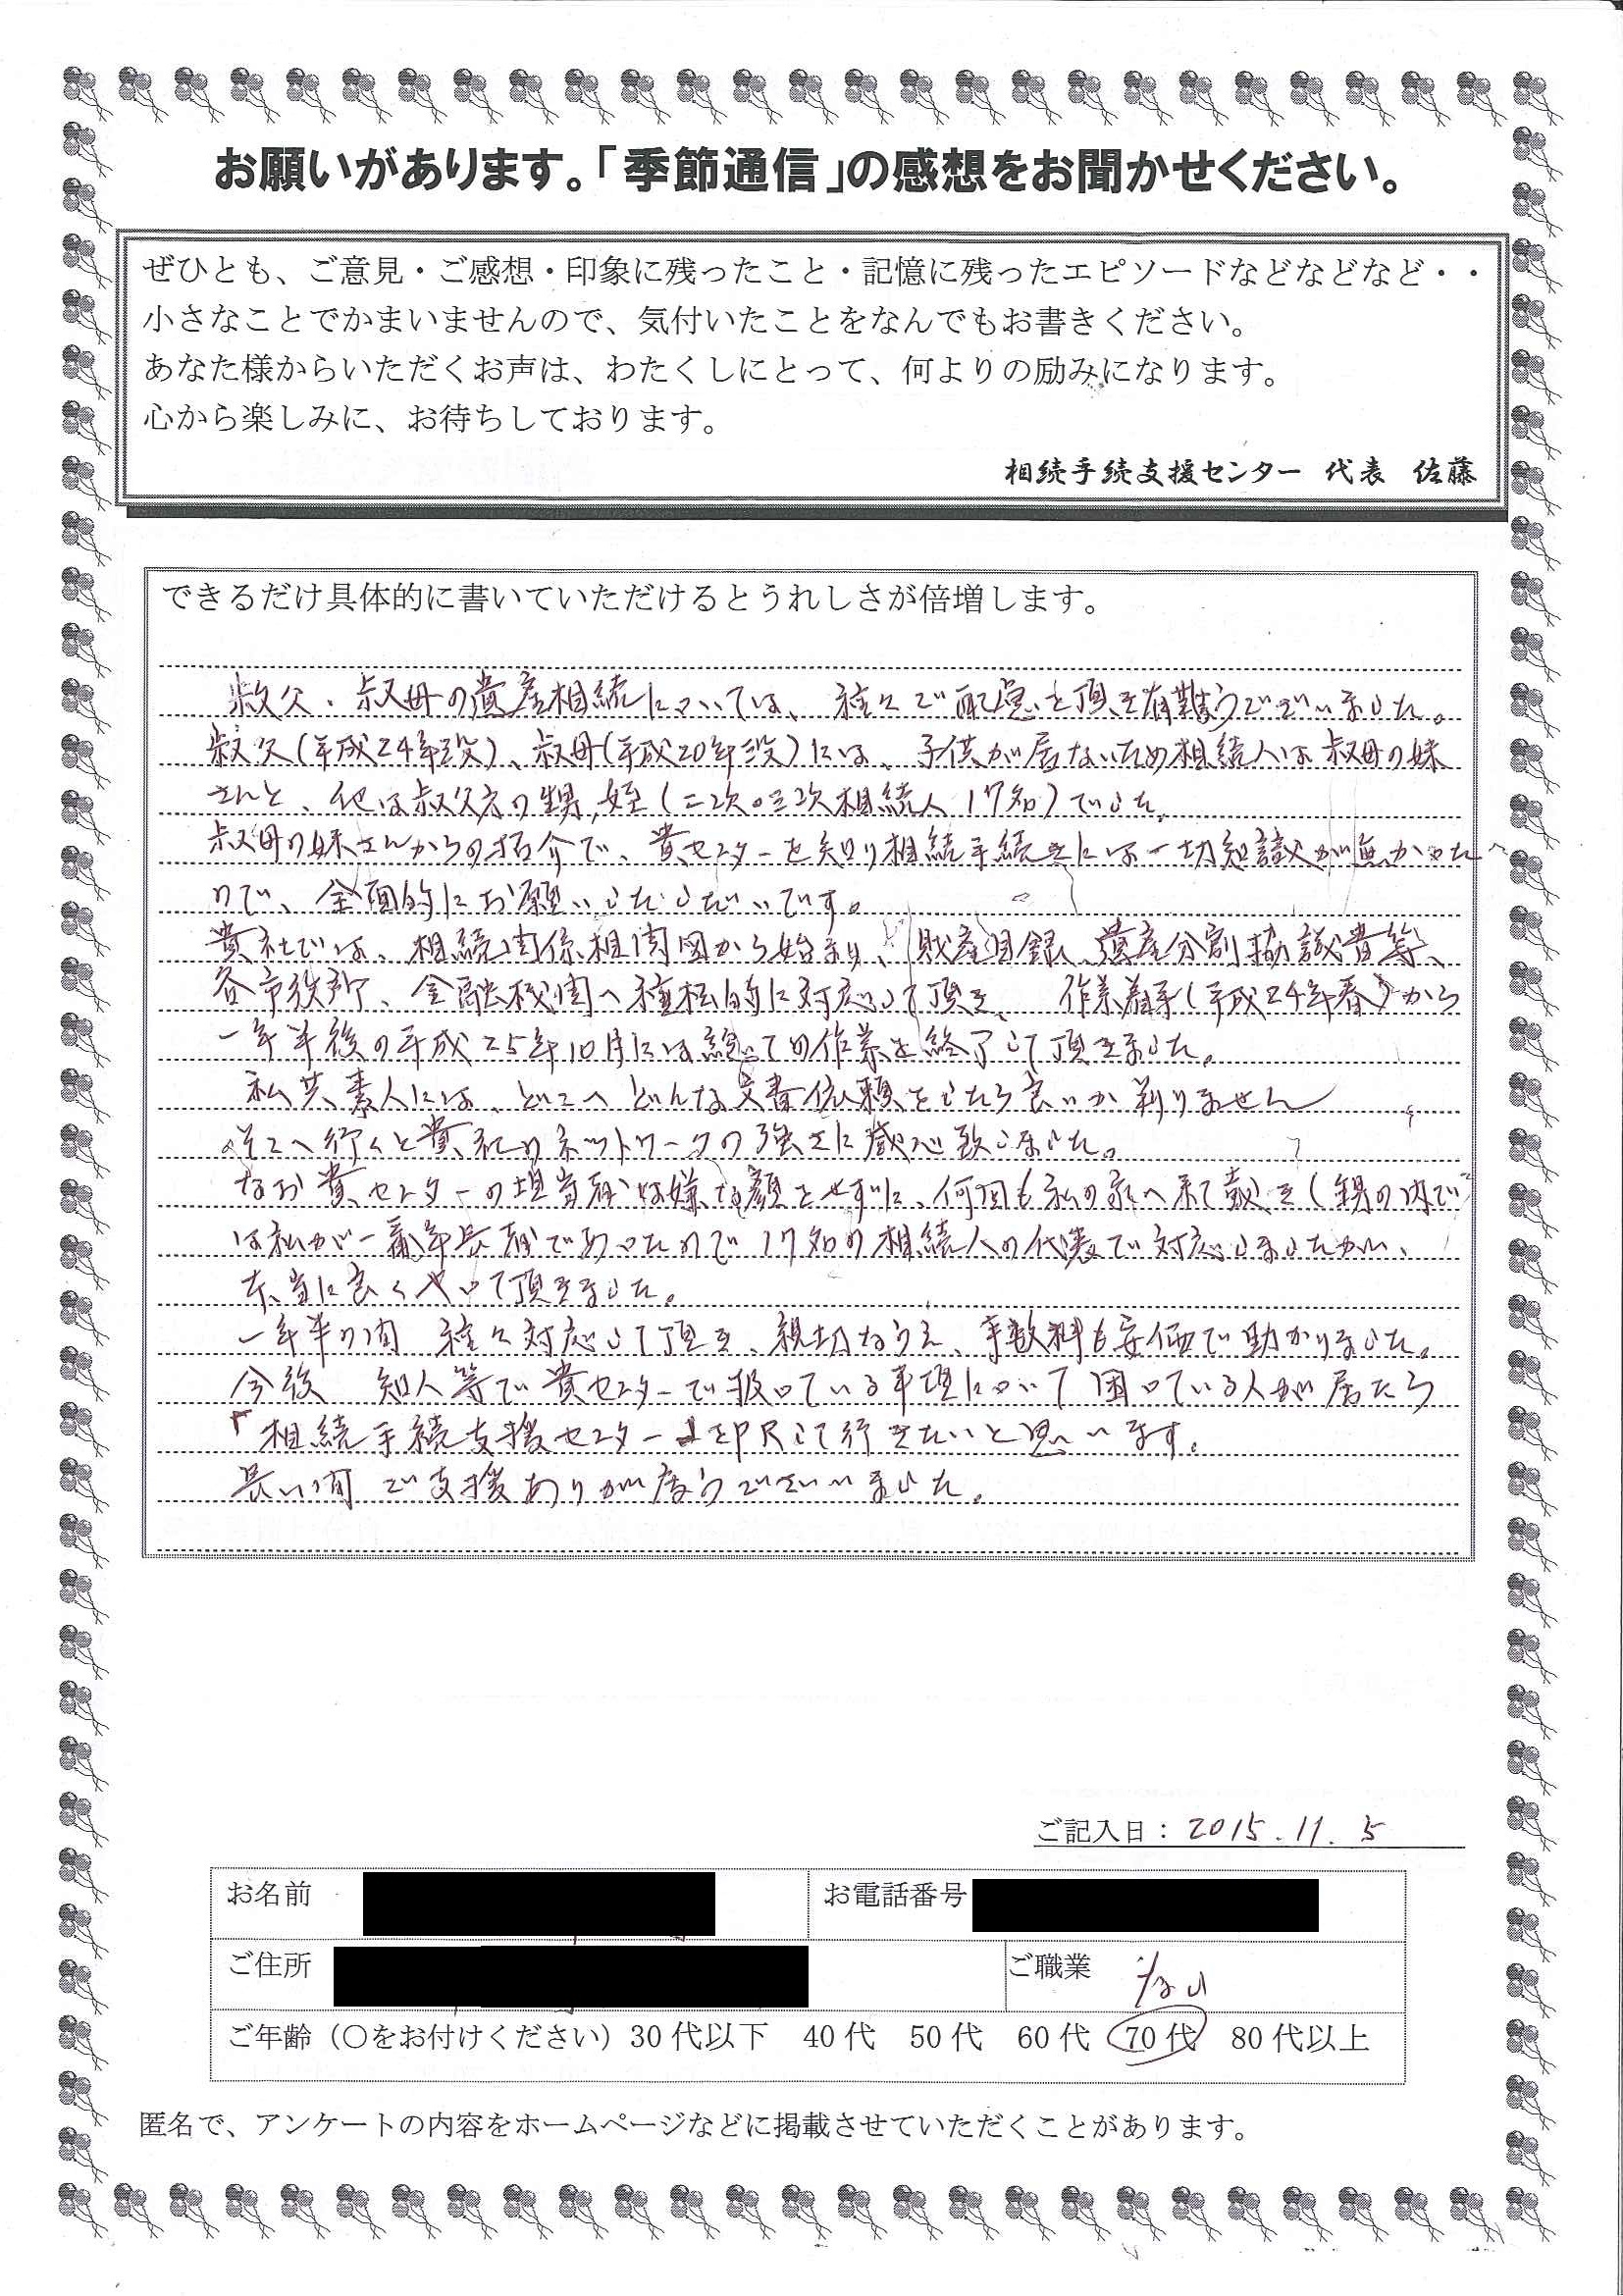 お願いがあります。「季節通信」の感想をお聞かせください。
ぜひとも、ご意見・ご感想・印象に残ったこと・記憶に残ったエピソードなどなどなど・・
小さなことでかまいませんので、気付いたことをなんでもお書きください。
あなた様からいただくお声は、わたくしにとって、何よりの励みになります。
心から楽しみに、お待ちしております。
相続手続支援センター 代表 佐藤
できるだけ具体的に書いていただけるとうれしさが倍増します。
叔父・叔母の遺産相続については、種々ご配慮を頂き有難うございました。
叔父(平成24年没)、叔母(平成20年没)には、子供が居ないため相続人は叔母の妹
さんと、他は叔父方の甥、姪(二次・三次相続人17名)でした。
叔母の妹さんからの紹介で、貴センターを知り相続手続きには一切知識が無かった
ので、全面的にお願いしたしだいです。
貴社では、相続関係相関図から始まり、財産目録、遺産分割協議書等、
各市役所、金融機関へ積極的に対応して頂き、作業着手(平成24年春)から
一年半後の平成25年10月には総ての作業を終了して頂きました。
私共素人には、どこへどんな文書依頼をしたら良いか判りません
そこへ行くと貴社のネットワークの強さに感心致しました。
なお貴センターの担当者は嫌な顔をせずに、何回も私の家へ来て戴き(甥の内で
は私が一番年長者であったので17名の相続人の代表で対応しましたが)、
本当に良くやって頂きました。
一年半の間 種々対応して頂き、親切なうえ、手数料も安価で助かりました。
今後 知人等で貴センターで扱っている事項について困っている人が居たら
「相続手続支援センター」をPRして行きたいと思います。
長い間ご支援ありが度うございました。
ご記入日：2015.11.5
お名前 お電話番号
ご住所 ご職業 なし
ご年齢（○をお付けください）30代以下 40代 50代 60代 70代 80代以上
匿名で、アンケートの内容をホームページなどに掲載させていただくことがあります。